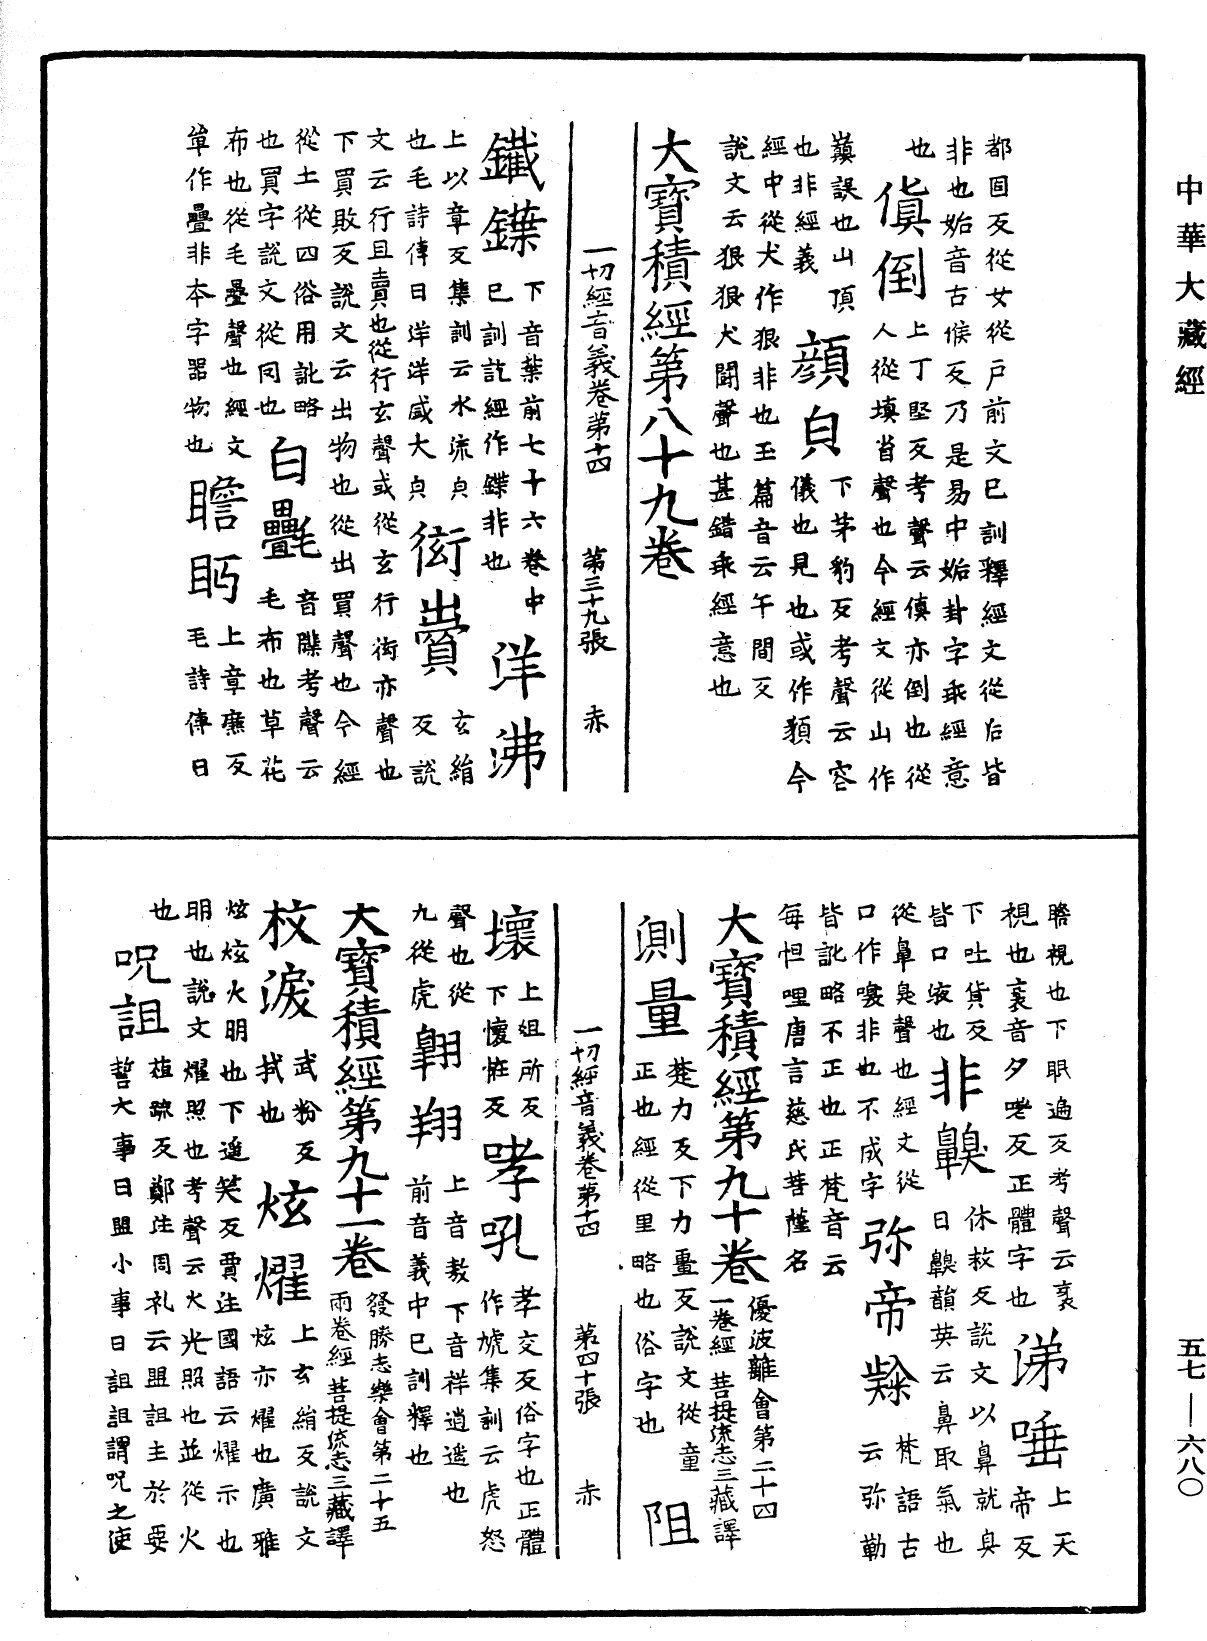 中華大藏經
都固反從女從戶前文已訓釋經文從后皆
非也姤音古候反乃是易中姤卦字乖經意
也
傎倒
上丁堅反考聲云傎亦倒也從
人從填省聲也今經文從山作
巔誤也山頂
也非經義
顏皃
下茅豹反考聲云容
儀也見也或作頯今
經中從犬作狠非也玉篇音云午間反
說文云狠狠犬鬪聲也甚錯乖經意也
大寶積經第八十九卷
一切經音義卷第十四　第三十九張　赤
鐵鍱
下音葉前七十六卷中
已訓訖經作鍱非也
洋沸
上以章反集訓云水流皃
也毛詩傳曰洋洋盛大皃
衒賣
玄絹
反說
文云行且賣也從行玄聲或從玄行衒亦聲也
下買敗反說文云出物也從出買聲也今經
從士從四俗用訛略
也買字說文從冈也
白㲲
音牒考聲云
毛布也草花
布也從毛疊聲也經文
單作疊非本字器物也
瞻眄
上章廉反
毛詩傳曰
瞻視也下眠遍反考聲云衺
視也衺音夕嗟反正體字也
涕唾
上天
帝反
下吐貨反
皆口液也
非齅
休救反說文以鼻就臭
曰齅韻英云鼻取氣也
從鼻臭聲也經文從
口作嗅非也不成字
弥帝㸊
梵語古
云弥勒
皆訛略不正也正梵音云
每怛哩唐言慈氏菩薩名
大寶積經第九十卷
優波離會第二十四
一卷經　菩提流志三藏譯
測量
楚力反下力畺反說文從童
正也經從里略也俗字也
阻
一切經音義卷第十四　第四十張　赤
壞
上姐所反
下懷恠反
哮吼
孝交反俗字也正體
作虓集訓云虎怒
聲也從
九從虎
翺翔
上音敖下音祥逍遥也
前音義中已訓釋也
大寶積經第九十一卷
發勝志樂會第二十五
兩卷經　菩提流志三藏譯
抆淚
武粉反
拭也
炫燿
上玄絹反說文
炫亦燿也廣雅
炫炫火明也下遥笑反賈注國語云燿示也
明也說文燿照也考聲云火光照也並從火
也
呪詛
植䟽反鄭注周礼云盟詛主於要
誓大事曰盟小事曰詛詛謂呪之使
五七—六八〇